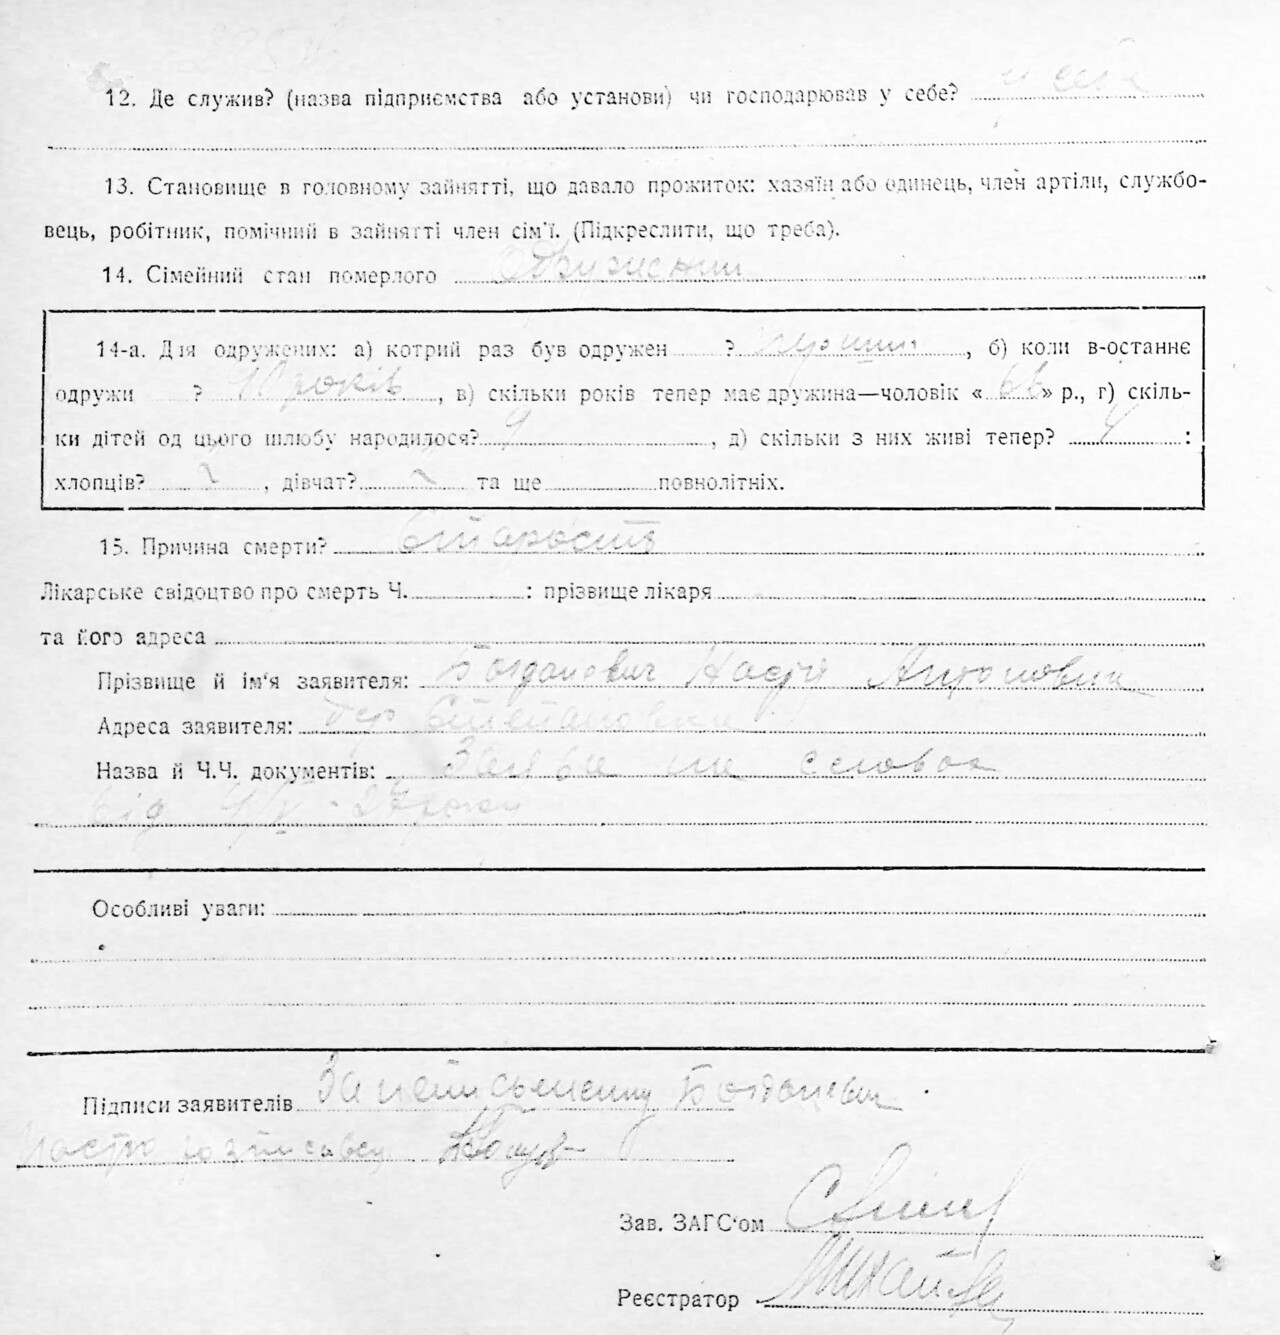 12. Де служив? (назва підприємства або установи) чи господарював у себе? у себе
13. Становище в головному зайнятті, що давало прожиток: хазяїн або одинець, член артіли, службо-
вець, робітник, помічний в зайнятті член сім'ї. (Підкреслити, що треба).
14. Сімейний стан померлого одружений
14-а. Для одружених: а) котрий раз був одружен ? перший, б) коли в-останнє
одружи ? 40 років, в) скільки років тепер має дружина—чоловік « » р., г) скіль-
ки дітей од цього шлюбу народилося? 9, д) скільки з них живі тепер? 4 :
хлопців? 2, дівчат? 2 та ще повнолітніх.
15. Причина смерти? Старость
Лікарське свідоцтво про смерть Ч. : прізвище лікаря
та його адреса
Прізвище й ім'я заявителя: Богданович Антоновна
Адреса заявителя: Степановка
Назва й Ч.Ч. документів: Заява на словах
від 4/V - 27 року
Особливі уваги:
Підписи заявителів За неписьменну Богданович
розписавсь
Зав. ЗАГС'ом
Реєстратор